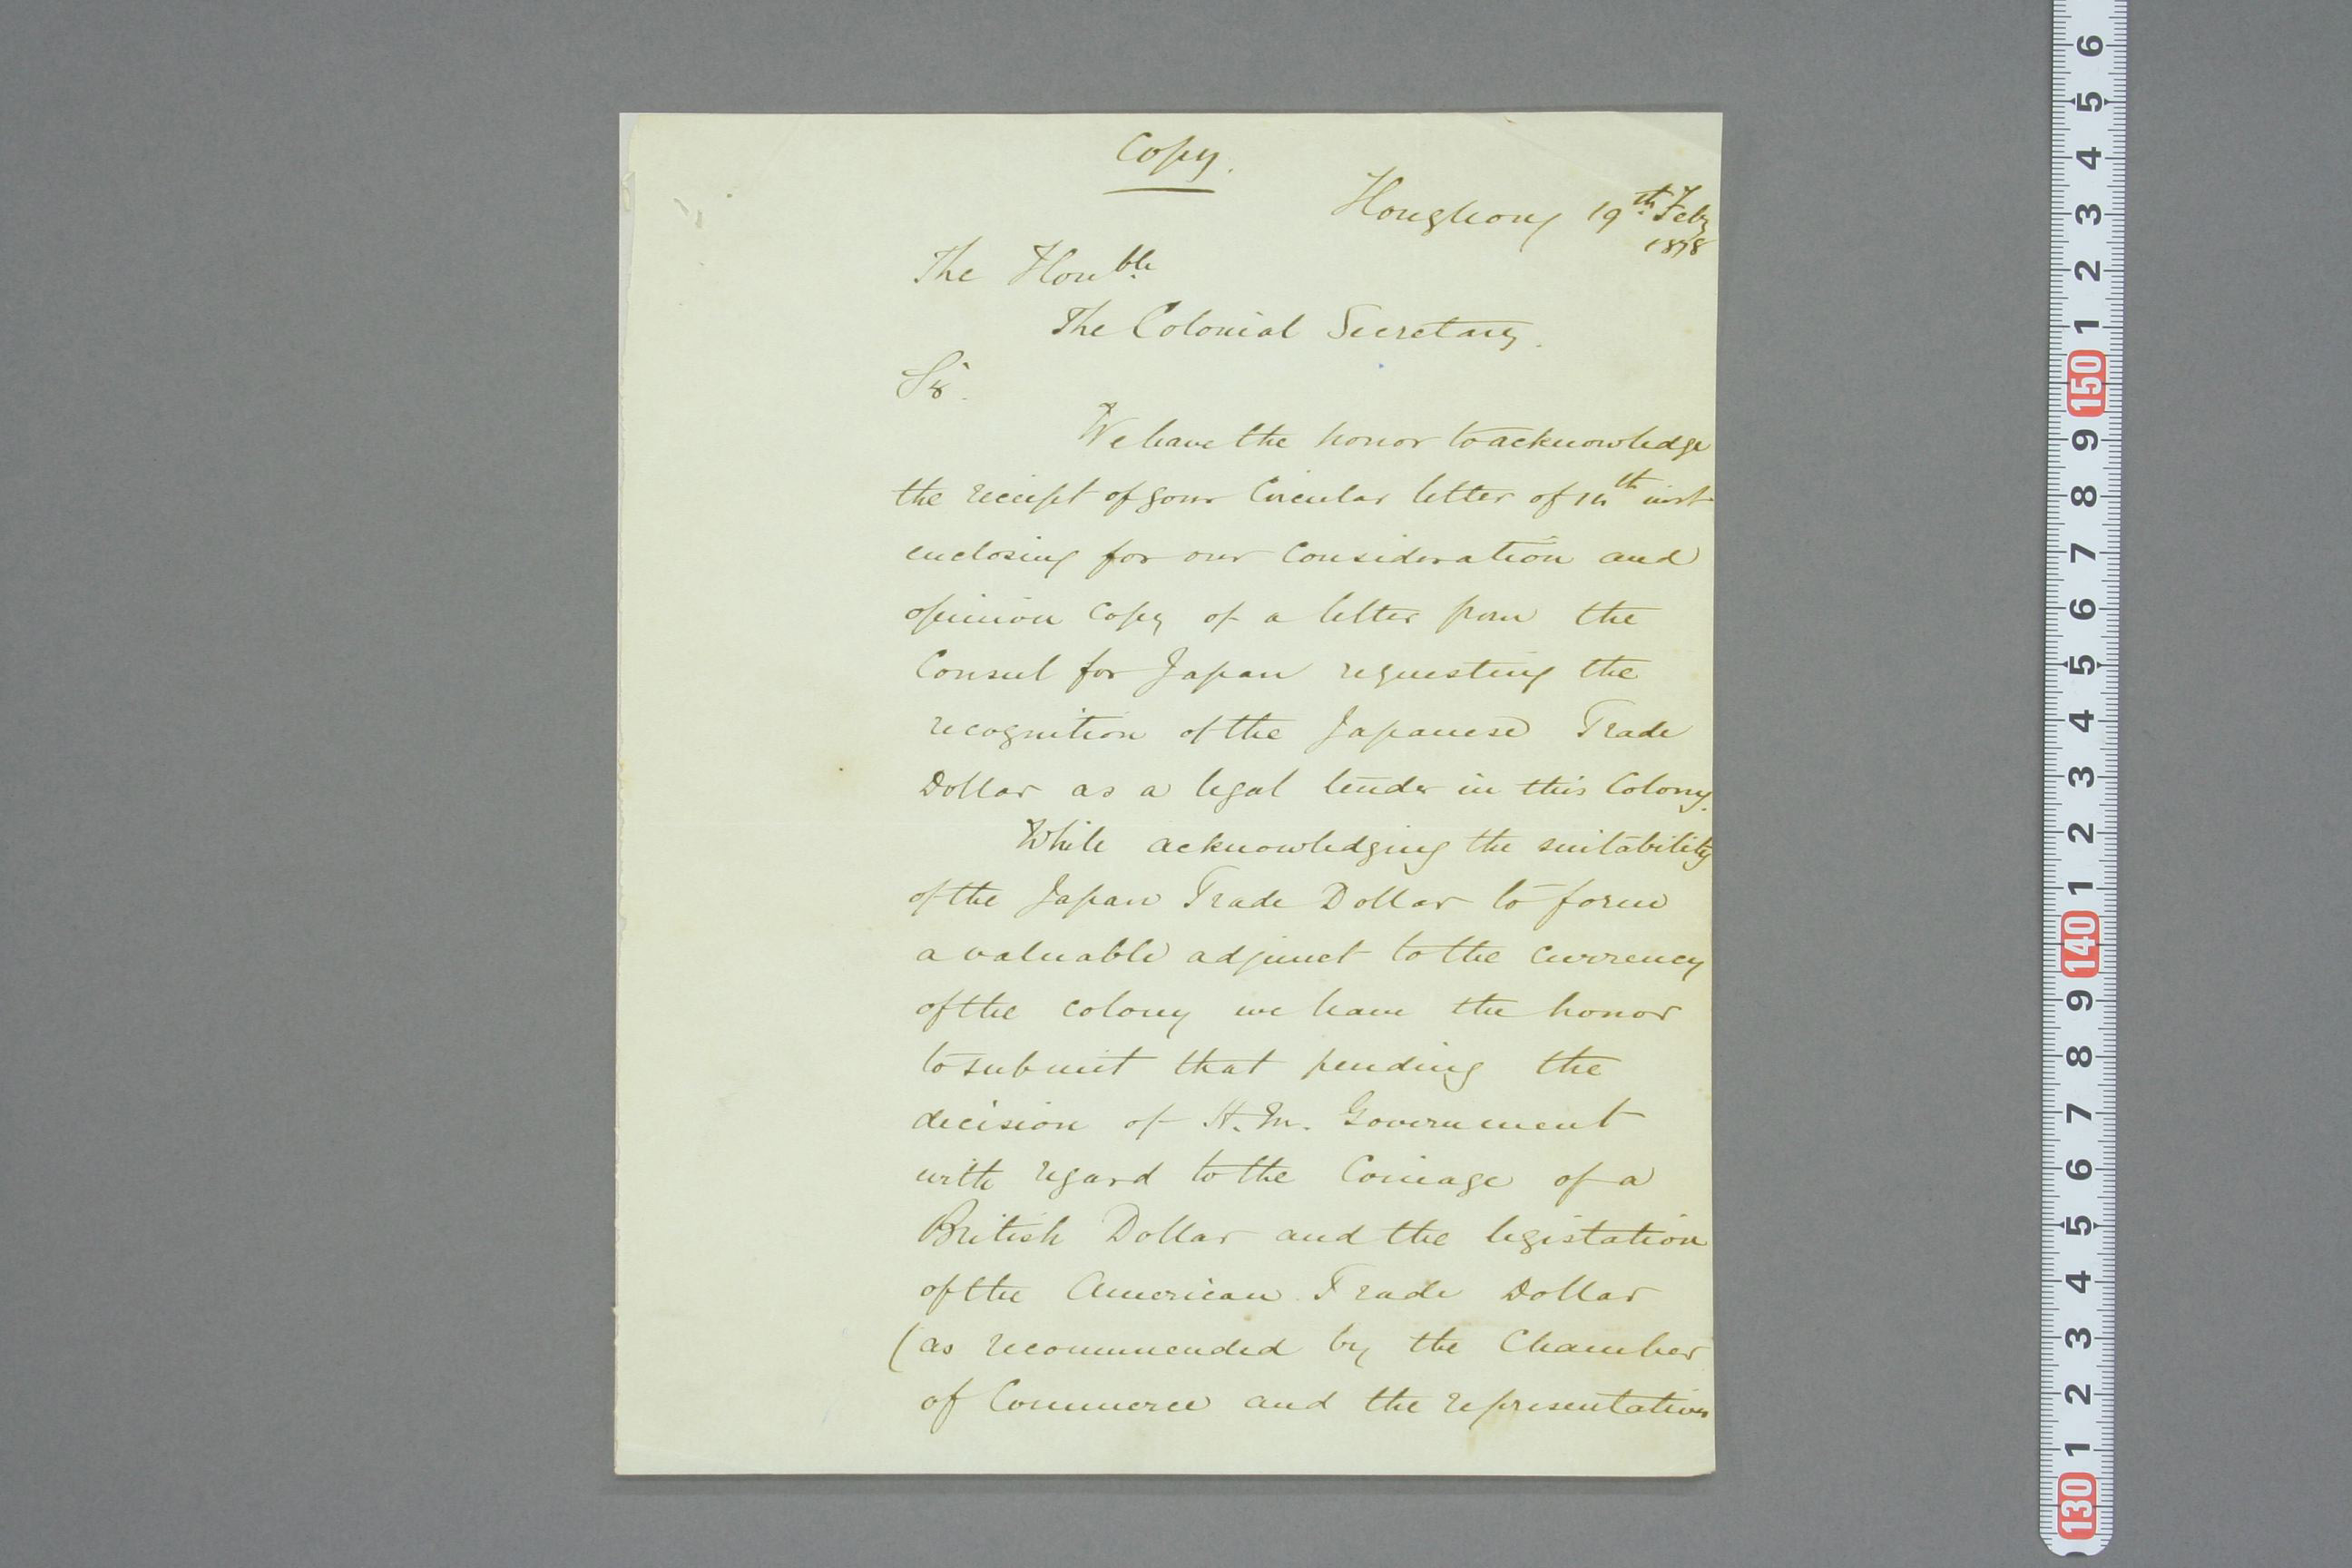 Copy.
Hongkong 19th Feby
1878
The Honble
The Colonial Secretary.
Sir.
We have the honor to acknowledge
the receipt of your Circular letter of 14th inst
enclosing for our consideration and
opinion copy of a letter from the
Consul for Japan requesting the
recognition of the Japanese Trade
Dollar as a legal tender in this Colony.
While acknowledging the suitability
of the Japan Trade Dollar to form
a valuable adjunct to the currency
of the colony we have the honor
to submit that pending the
decision of H.M. Government
with regard to the Coinage of a
British Dollar and the legislation
of the American Trade Dollar
(as recommended by the Chamber
of Commerce and the representatives
6
5
4
3
2
1
150
9
8
7
6
5
4
3
2
1
140
9
8
7
6
5
4
3
2
1
130